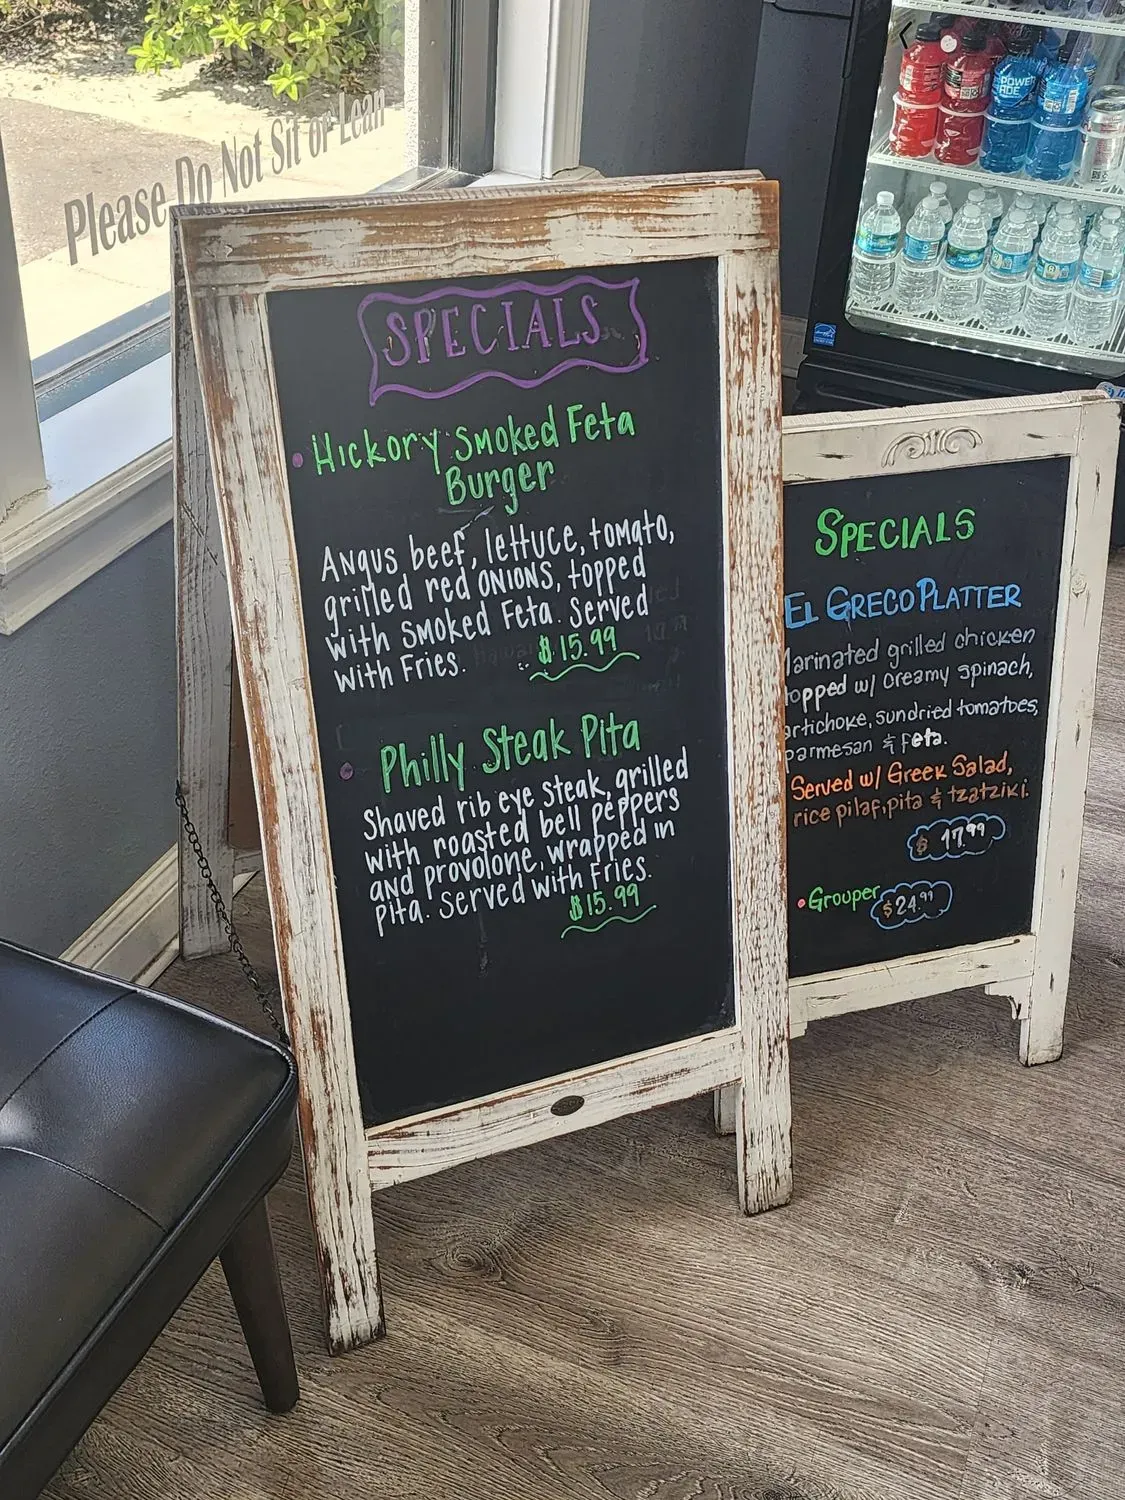 Please Do Not Sit or Lean
SPECIALS
• Hickory Smoked Feta
Burger
Angus beef, lettuce, tomato,
grilled red onions, topped
with smoked Feta. Served
with Fries.
$15.99
• Philly Steak Pita
Shaved rib eye steak, grilled
with roasted bell peppers
and provolone, wrapped in
pita. Served with Fries.
$15.99
SPECIALS
EL GRECO PLATTER
arinated grilled chicken
opped w/ creamy spinach,
artichoke, sundried tomatoes,
parmesan & feta.
Served w/ Greek Salad,
rice pilaf, pita & tzatziki.
$17.99
• Grouper $24.99
POWERADE